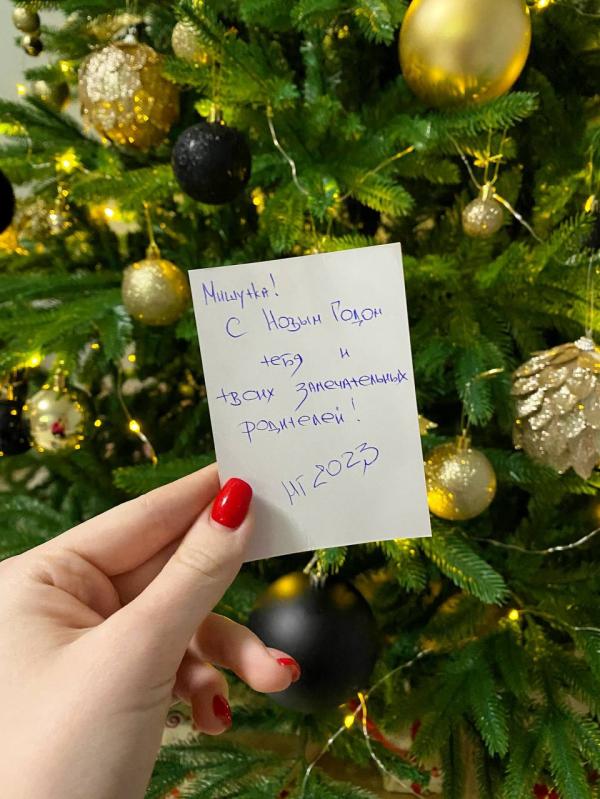 Мишутка!
С Новым Годом
тебя и
твоих замечательных
родителей!
НГ 2023